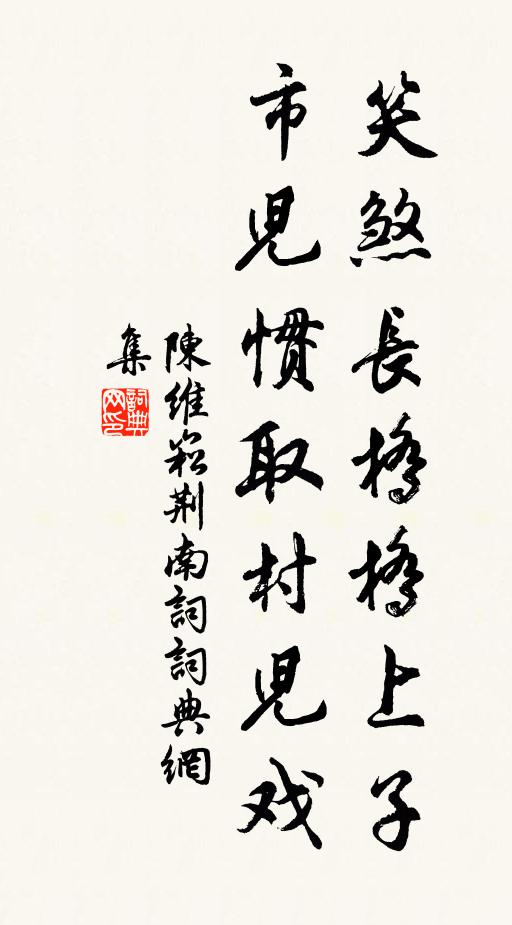 笑煞長橋橋上子
市児慣取村児戏
陳維菘荆南詞詞典網
集
詞典
网印